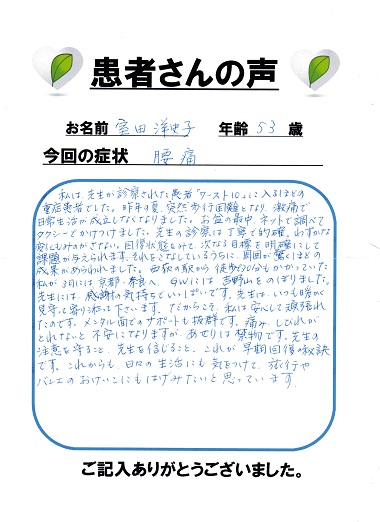 患者さんの声
お名前 室田 洋子 年齢 53 歳
今回の症状 腰痛
私は先生が診察された患者「ワースト10」に入るほどの
重症患者でした。昨年の夏、突然歩行困難となり、激痛で
日常生活が成立しなくなりました。お盆の最中、ネットで調べて
タクシーでかけつけました。先生の診察は丁寧で的確。わずかな
変化もみのがさない。回復状態をみて、次なる目標を明確にして
課題が与えられます。それをこなしているうちに、周囲が驚くほどの
成果があらわれました。西荻の駅から徒歩30分もかかっていた
私が3月には京都・奈良へ、GWには吉野山をのぼりました。
先生には、感謝の気持ちでいっぱいです。先生は、いつも
見守って寄り添って下さいます。だからこそ、私は安心して頑張れ
たのです。メンタル面でのサポートも抜群です。痛み、しびれが
とれないと不安になりますが、あせりは禁物です。先生の
注意を守ること、先生を信じること、これが早期回復の秘訣
です。これからも、日々の生活にも気をつけて、旅行や
バレエのおけいこにもはげみたいと思っています。
ご記入ありがとうございました。